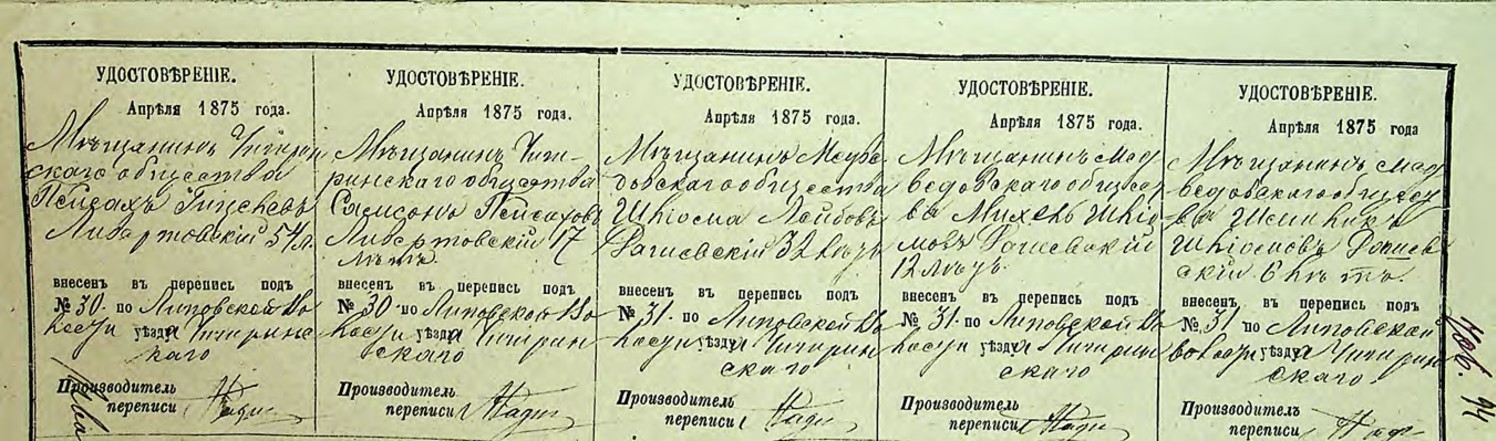 УДОСТОВѢРЕНІЕ.
Апрѣля 1875 года.
Мѣщанинъ Чигирин
скаго общества
Пейсахъ
54 л.
внесенъ въ перепись подъ
№ 30. по Липовской Во
лости уѣзда Чигирин
скаго
Производитель
переписи
УДОСТОВѢРЕНІЕ.
Апрѣля 1875 года.
Мѣщанинъ Чиги-
ринскаго общества
Самсонъ Пейсаховъ
Либертовскій 17
лѣтъ.
внесенъ въ перепись подъ
№ 30 по Липовской Во
лости уѣзда Чигирин
скаго
Производитель
переписи
УДОСТОВѢРЕНІЕ.
Апрѣля 1875 года.
Мѣщанинъ Медве
довскаго общества
Шліома Лейбовъ
32 лѣтъ
внесенъ въ перепись подъ
№ 31. по Липовской Во
лости уѣзда Чигирин
скаго
Производитель
переписи
УДОСТОВѢРЕНІЕ.
Апрѣля 1875 года.
Мѣщанинъ Мед
ведовскаго общест
ва Михель Шліо
мовъ
12 лѣтъ.
внесенъ въ перепись подъ
№ 31. по Липовской Во
лости уѣзда Чигирин
скаго
Производитель
переписи
УДОСТОВѢРЕНІЕ.
Апрѣля 1875 года
Мѣщанинъ Мед
ведовскаго общест
ва
Шліомовъ
скій 6 лѣтъ.
внесенъ въ перепись подъ
№ 31 по Липовской
волости уѣзда Чигирин
скаго
Производитель
переписи